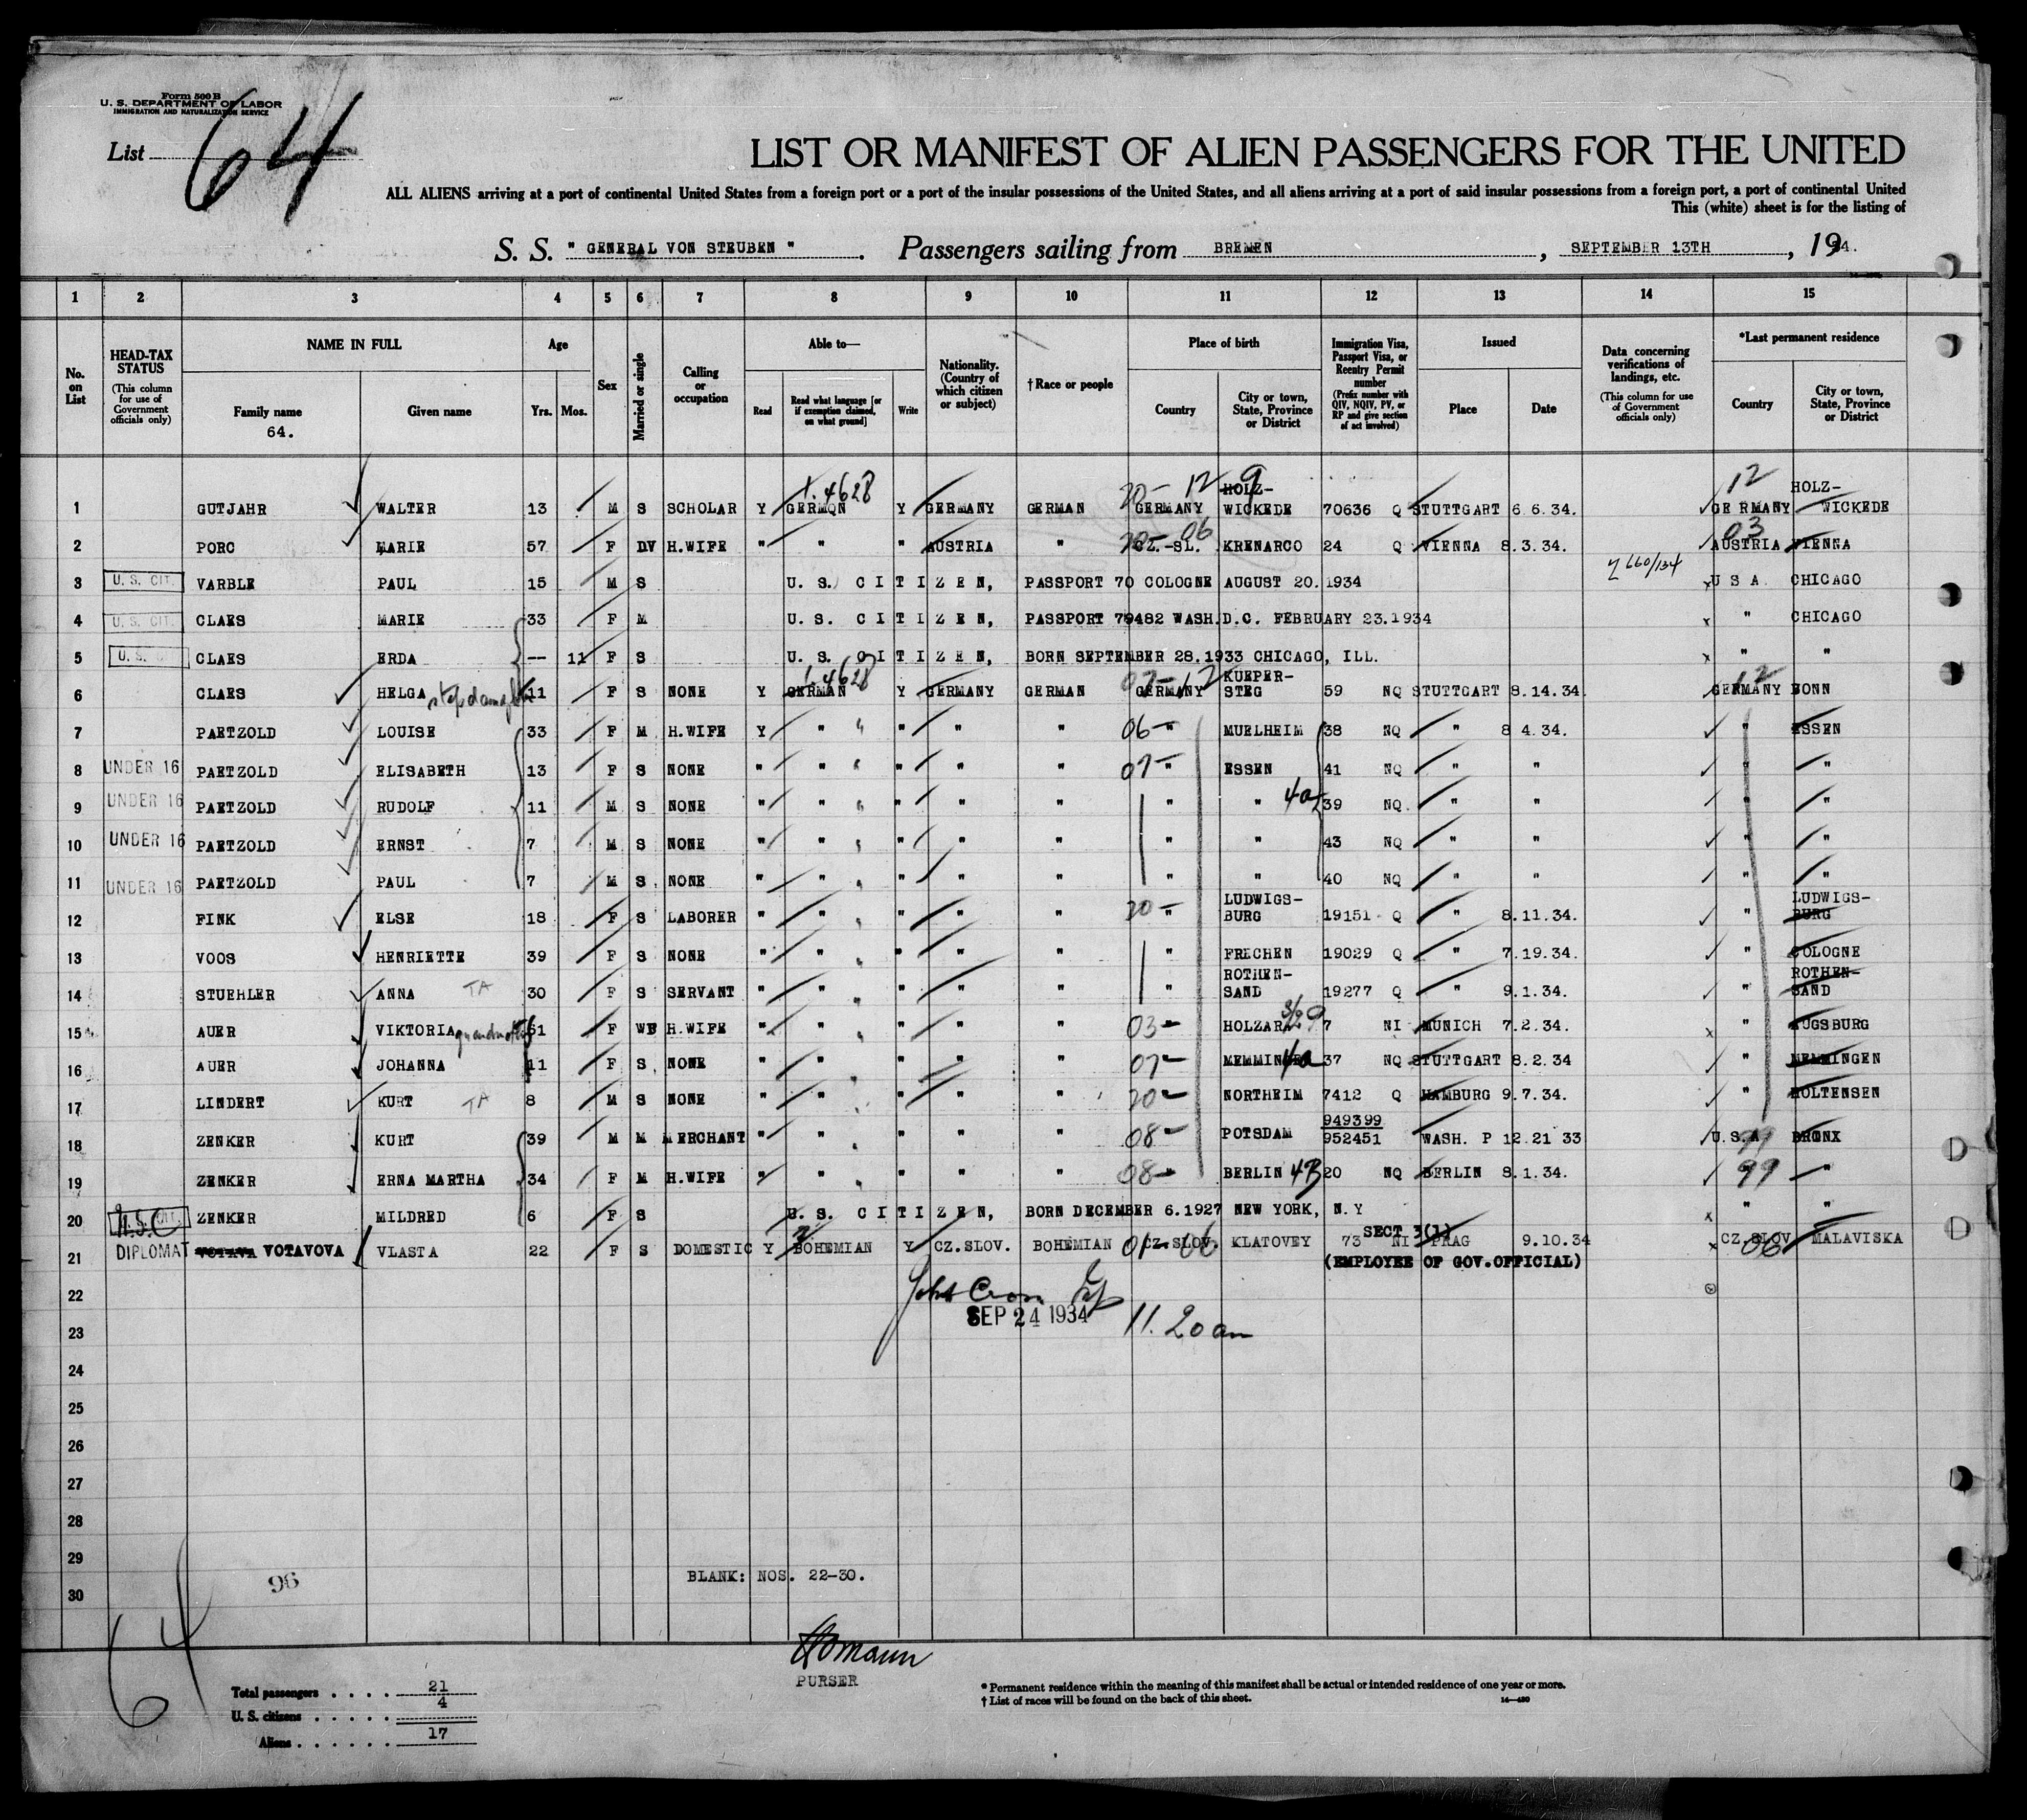 Form 500 B
U. S. DEPARTMENT OF LABOR
IMMIGRATION AND NATURALIZATION SERVICE
List 64
LIST OR MANIFEST OF ALIEN PASSENGERS FOR THE UNITED
ALL ALIENS arriving at a port of continental United States from a foreign port or a port of the insular possessions of the United States, and all aliens arriving at a port of said insular possessions from a foreign port, a port of continental United
This (white) sheet is for the listing of
S. S. " GENERAL VON STEUBEN ". Passengers sailing from BREMEN, SEPTEMBER 13TH, 1934.
1 2 3 4 5 6 7 8 9 10 11 12 13 14 15
No. on List
HEAD-TAX STATUS (This column for use of Government officials only)
NAME IN FULL
Family name 64.
Given name
Age
Yrs. Mos.
Sex
Married or single
Calling or occupation
Able to—
Read
Read what language [or if exemption claimed, on what ground]
Write
Nationality. (Country of which citizen or subject)
† Race or people
Place of birth
Country
City or town, State, Province or District
Immigration Visa, Passport Visa, or Reentry Permit number (Prefix number with QIV, NQIV, PV, or RP and give section of act involved)
Issued
Place
Date
Data concerning verifications of landings, etc. (This column for use of Government officials only)
*Last permanent residence
Country
City or town, State, Province or District
4628 20- 12 9 12
1 GUTJAHR WALTER 13 M S SCHOLAR Y GERMQN Y GERMANY GERMAN GERMANY HOLZ-WICKEDE 70636 Q STUTTGART 6.6.34. GERMANY HOLZ-WICKEDE
20- 06 03
2 PORC MARIE 57 F DV H.WIFE " " " AUSTRIA " CZ.-SL. KRENARCO 24 Q VIENNA 8.3.34. AUSTRIA VIENNA
3 U. S. CIT. VARBLE PAUL 15 M S U. S. CITIZEN, PASSPORT 70 COLOGNE AUGUST 20.1934 U S A CHICAGO
4 U. S. CIT. CLAES MARIE 33 F M U. S. CITIZEN, PASSPORT 79482 WASH.D.C. FEBRUARY 23.1934 " CHICAGO
5 U. S. CLAES ERDA -- 11 F S U. S. CITIZEN, BORN SEPTEMBER 28.1933 CHICAGO, ILL. " "
4628 07- 12 12
6 CLAES HELGA 11 F S NONE Y GERMAN Y GERMANY GERMAN GERMANY KUEPER-STEG 59 NQ STUTTGART 8.14.34 GERMANY BONN
stepdaughter
7 PAETZOLD LOUISE 33 F M H.WIFE Y " " " " 06- " MUELHEIM 38 NQ " 8 4.34. " ESSEN
8 UNDER 16 PAETZOLD ELISABETH 13 F S NONE " " " " " 07- " ESSEN 41 NQ " " " "
9 UNDER 16 PAETZOLD RUDOLF 11 M S NONE " " " " " " " 4a 39 NQ. " " " "
10 UNDER 16 PAETZOLD ERNST 7 M S NONE " " " " " " " 43 NQ " " " "
11 UNDER 16 PAETZOLD PAUL 7 M S. NONE " " " " " " " 40 NQ " " " "
12 FINK ELSE 18 F S LABORER " " " " " 20- " LUDWIGS-BURG 19151 Q " 8.11.34. " LUDWIGS-BURG
13 VOOS HENRIETTE 39 F S NONE " " " " " " FRECHEN 19029 Q " 7.19.34. " COLOGNE
14 STUEHLER ANNA TA 30 F S SERVANT " " " " " " ROTHEN-SAND 19277 Q " 9.1.34. " ROTHEN-SAND
15 AUER VIKTORIA grandmother 61 F H.WIFE " " " " " 03- " 7 NI MUNICH 7.2.34. " AUGSBURG
16 AUER JOHANNA 11 F S. NONE " " " " " 07- " 4a 37 NQ STUTTGART 8.2.34 " MEMMINGEN
17 LINDERT KURT TA 8 M S NONE " " " " " 20- " NORTHEIM 7412 Q HAMBURG 9.7.34. " HOLTENSEN
18 ZENKER KURT 39 M M MERCHANT " " " " " 08- " POTSDAM 949399 952451 WASH. P 12.21 33 U.S.A 99 BRONX
19 ZENKER ERNA MARTHA 34 F M H.WIFE " " " " " 08- " BERLIN 4B 20 NQ BERLIN 8.1.34. 99 "
20 U.S.C ZENKER MILDRED 6 F S U. S. CITIZEN, BORN DECEMBER 6.1927 NEW YORK, N.Y " "
SECT 3(1)
21 DIPLOMAT VOTAVA VOTAVOVA VLASTA 22 F S DOMESTIC Y BOHEMIAN Y CZ.SLOV. BOHEMIAN CZ.SLOV. KLATOVEY 73 NI PRAG 9.10.34 CZ.SLOV 06 MALAVISKA
(EMPLOYEE OF GOV.OFFICIAL)
22
SEP 24 1934 11.20 am
23
24
25
26
27
28
29
96 BLANK: NOS. 22-30.
30
64
Homann
PURSER
Total passengers 21
U. S. citizens 4
Aliens 17
* Permanent residence within the meaning of this manifest shall be actual or intended residence of one year or more.
† List of races will be found on the back of this sheet.
14—420